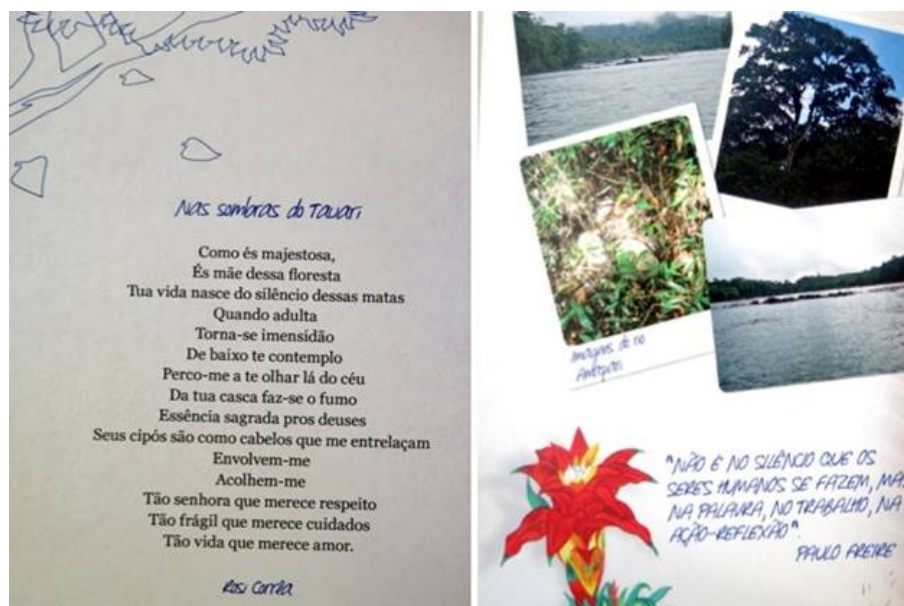 Nas sombras do Tauari
Como és majestosa,
És mãe dessa floresta
Tua vida nasce do silêncio dessas matas
Quando adulta
Torna-se imensidão
De baixo te contemplo
Perco-me a te olhar lá do céu
Da tua casca faz-se o fumo
Essência sagrada pros deuses
Seus cipós são como cabelos que me entrelaçam
Envolvem-me
Acolhem-me
Tão senhora que merece respeito
Tão frágil que merece cuidados
Tão vida que merece amor.
Rosi Corrêa
Imagens do rio
Amapari
"NÃO É NO SILÊNCIO QUE OS
SERES HUMANOS SE FAZEM, MAS
NA PALAVRA, NO TRABALHO, NA
AÇÃO-REFLEXÃO".
PAULO FREIRE